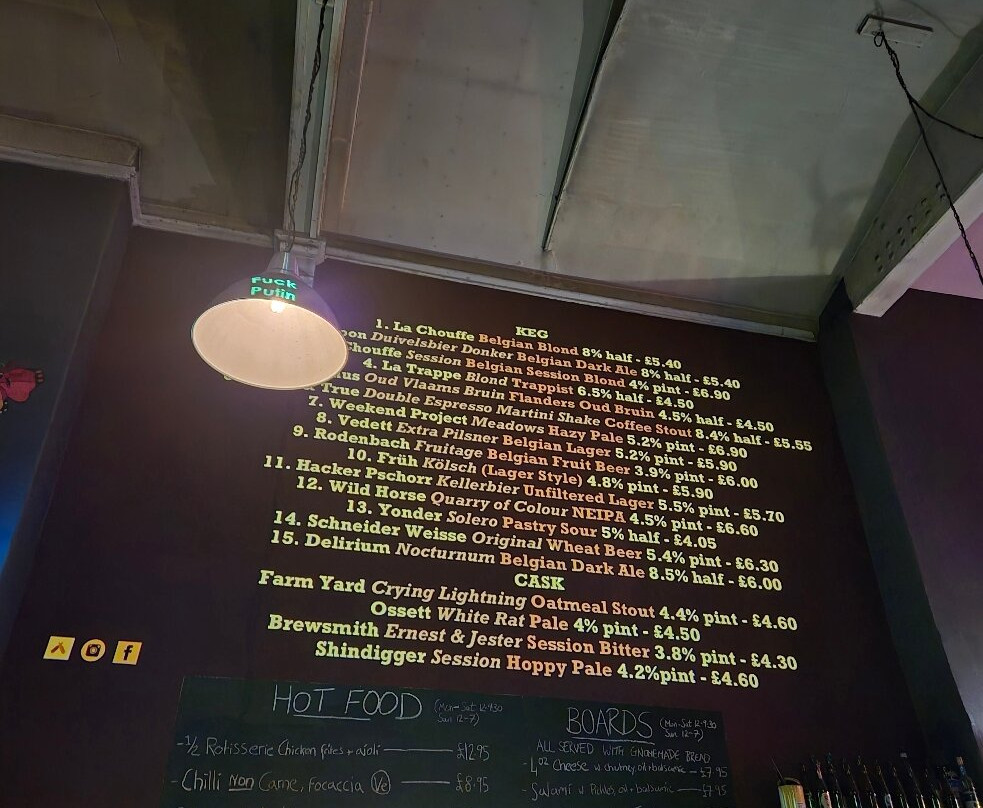 Fuck
Putin
KEG
1. La Chouffe Belgian Blond 8% half - £5.40
Duivelsbier Donker Belgian Dark Ale 8% half - £5.40
Chouffe Session Belgian Session Blond 4% pint - £6.90
4. La Trappe Blond Trappist 6.5% half - £4.50
Oud Vlaams Bruin Flanders Oud Bruin 4.5% half - £4.50
True Double Espresso Martini Shake Coffee Stout 8.4% half - £5.55
7. Weekend Project Meadows Hazy Pale 5.2% pint - £6.90
8. Vedett Extra Pilsner Belgian Lager 5.2% pint - £5.90
9. Rodenbach Fruitage Belgian Fruit Beer 3.9% pint - £6.00
10. Früh Kölsch (Lager Style) 4.8% pint - £5.90
11. Hacker Pschorr Kellerbier Unfiltered Lager 5.5% pint - £5.70
12. Wild Horse Quarry of Colour NEIPA 4.5% pint - £6.60
13. Yonder Solero Pastry Sour 5% half - £4.05
14. Schneider Weisse Original Wheat Beer 5.4% pint - £6.30
15. Delirium Nocturnum Belgian Dark Ale 8.5% half - £6.00
CASK
Farm Yard Crying Lightning Oatmeal Stout 4.4% pint - £4.60
Ossett White Rat Pale 4% pint - £4.50
Brewsmith Ernest & Jester Session Bitter 3.8% pint - £4.30
Shindigger Session Hoppy Pale 4.2%pint - £4.60
HOT FOOD (Mon-Sat 12-9.30
Sun 12-7)
- ½ Rotisserie Chicken frites + aioli £12.95
- Chilli Non Carne, focaccia (Ve) £8.95
BOARDS (Mon-Sat 12-9.30
Sun 12-7)
ALL SERVED WITH GNOMEMADE BREAD
- 4oz Cheese w chutney oil + balsamic - £7.95
- Salami w Pickles, oil + balsamic - £7.95